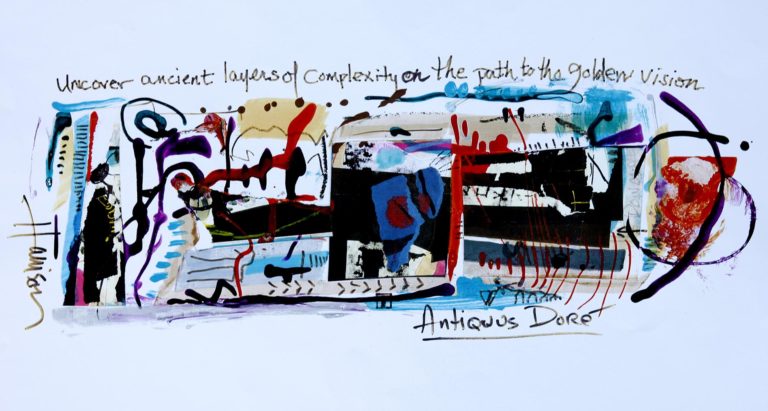 Uncover ancient layers of Complexity on the path to the golden vision
Antiquus Dore